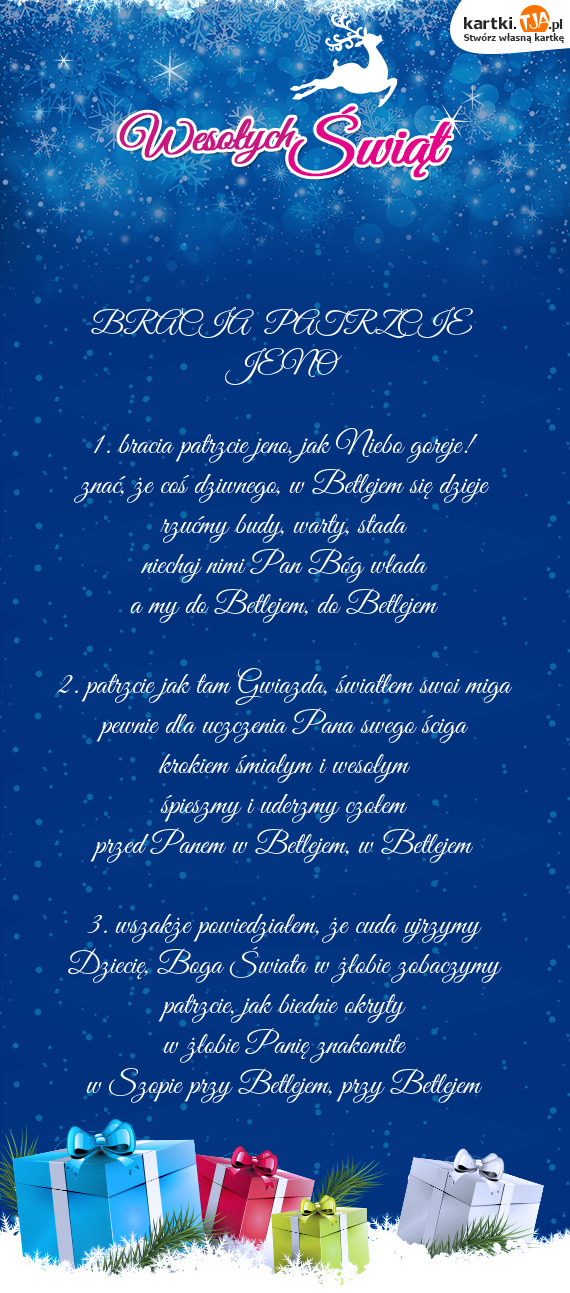 kartki.TJA.pl
Stwórz własną kartkę
Wesołych Świąt
BRACIA PATRZCIE
JENO
1. bracia patrzcie jeno, jak Niebo goreje!
znać, że coś dziwnego, w Betlejem się dzieje
rzućmy budy, warty, stada
niechaj nimi Pan Bóg włada
a my do Betlejem, do Betlejem
2. patrzcie jak tam Gwiazda, światłem swoi miga
pewnie dla uczczenia Pana swego ściga
krokiem śmiałym i wesołym
śpieszmy i uderzmy czołem
przed Panem w Betlejem, w Betlejem
3. wszakże powiedziałem, że cuda ujrzymy
Dziecię, Boga Świata w żłobie zobaczymy
patrzcie, jak biednie okryty
w żłobie Panię znakomite
w Szopie przy Betlejem, przy Betlejem